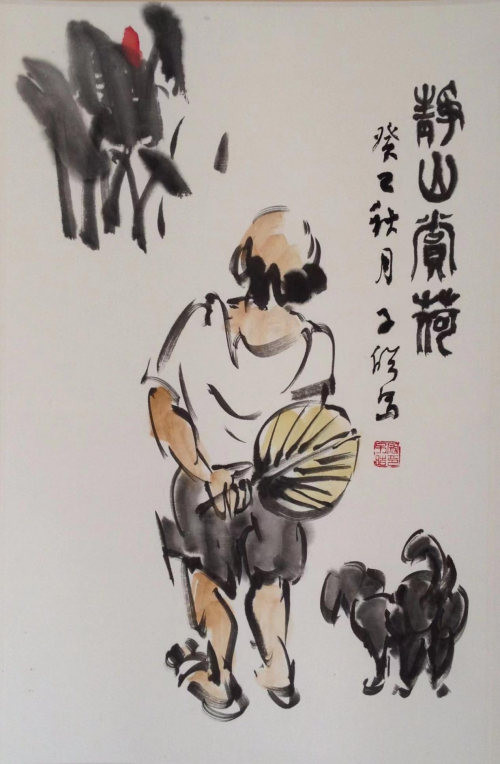 静山赏荷
癸巳秋月子皓写